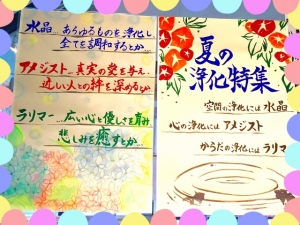 水晶 あらゆるものを浄化し
全てを調和するとか…
アメジスト…真実の愛を与え、
近しい人との絆を深めるとか
ラリマー…広い心と優しさを育み
悲しみを癒すとか…
夏の
浄化特集
空間の浄化には 水晶
心の浄化には アメジスト
からだの浄化には ラリマー